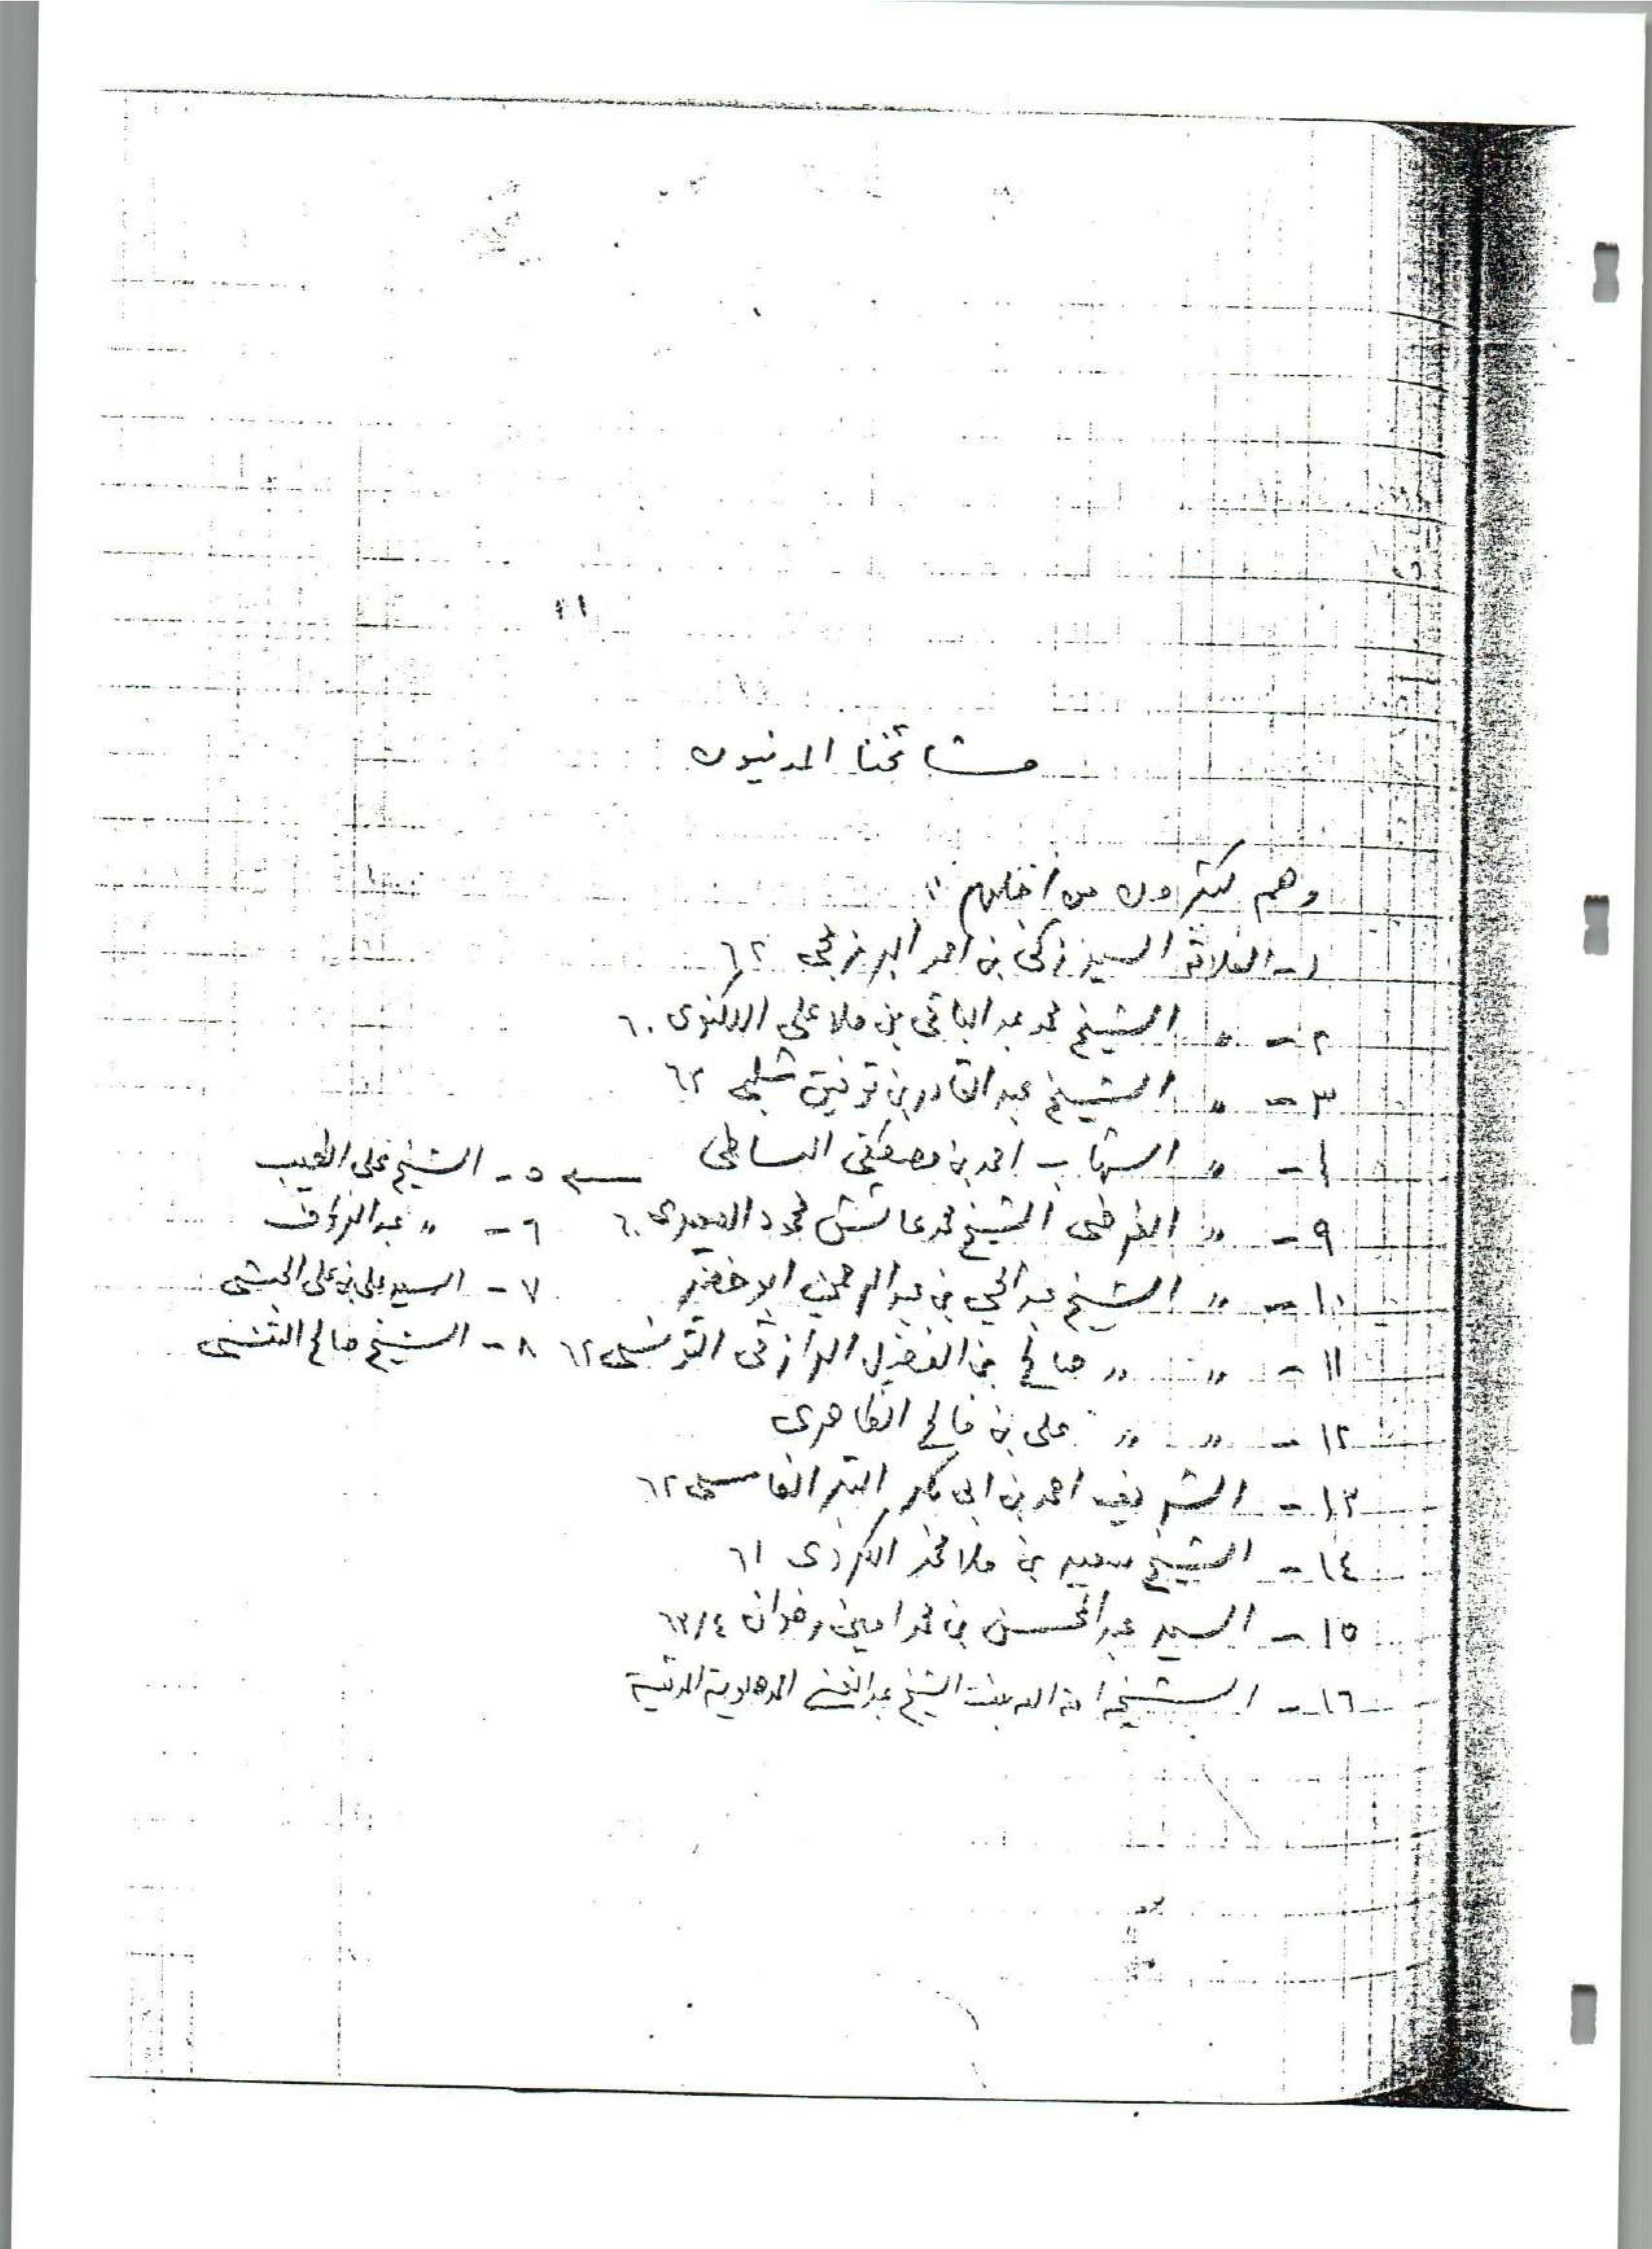 مشائخنا المدنيون
وهم كثيرون من أجلهم :
١- العلامة السيد زكي بن احمد البرزنجي ٦٢
٢- " الشيخ محمد عبد الباقي بن ملا علي اللكنوى ٦٠
٣- " الشيخ عبد القادر بن توفيق شلبي ٦٢
- " الشهاب احمد بن مصطفى البساطي
٥- الشيخ على الطيب
٩- " الشيخ محمد عائش محمود ٦٠
٦- " عبد الرؤف
١٠- " الشيخ عبد الحي بن عبد الرحمن ابو خضير
٧- السيد علي بن على الحبشي
١١- " " صالح بن الفضيل التونسي ٦٢
٨- الشيخ صالح
١٢- " " على بن فالح الظاهرى
١٣- الشريف احمد بن ابى بكر الفاسي ٦٢
١٤- الشيخ سعيد بن ملا محمد الكردى ٦١
١٥- السيد عبد المحسن بن محمد امين رضوان ٦٣/٤
١٦- الشيخة امة الله بنت الشيخ عبد الغني الدهلوية المدنية